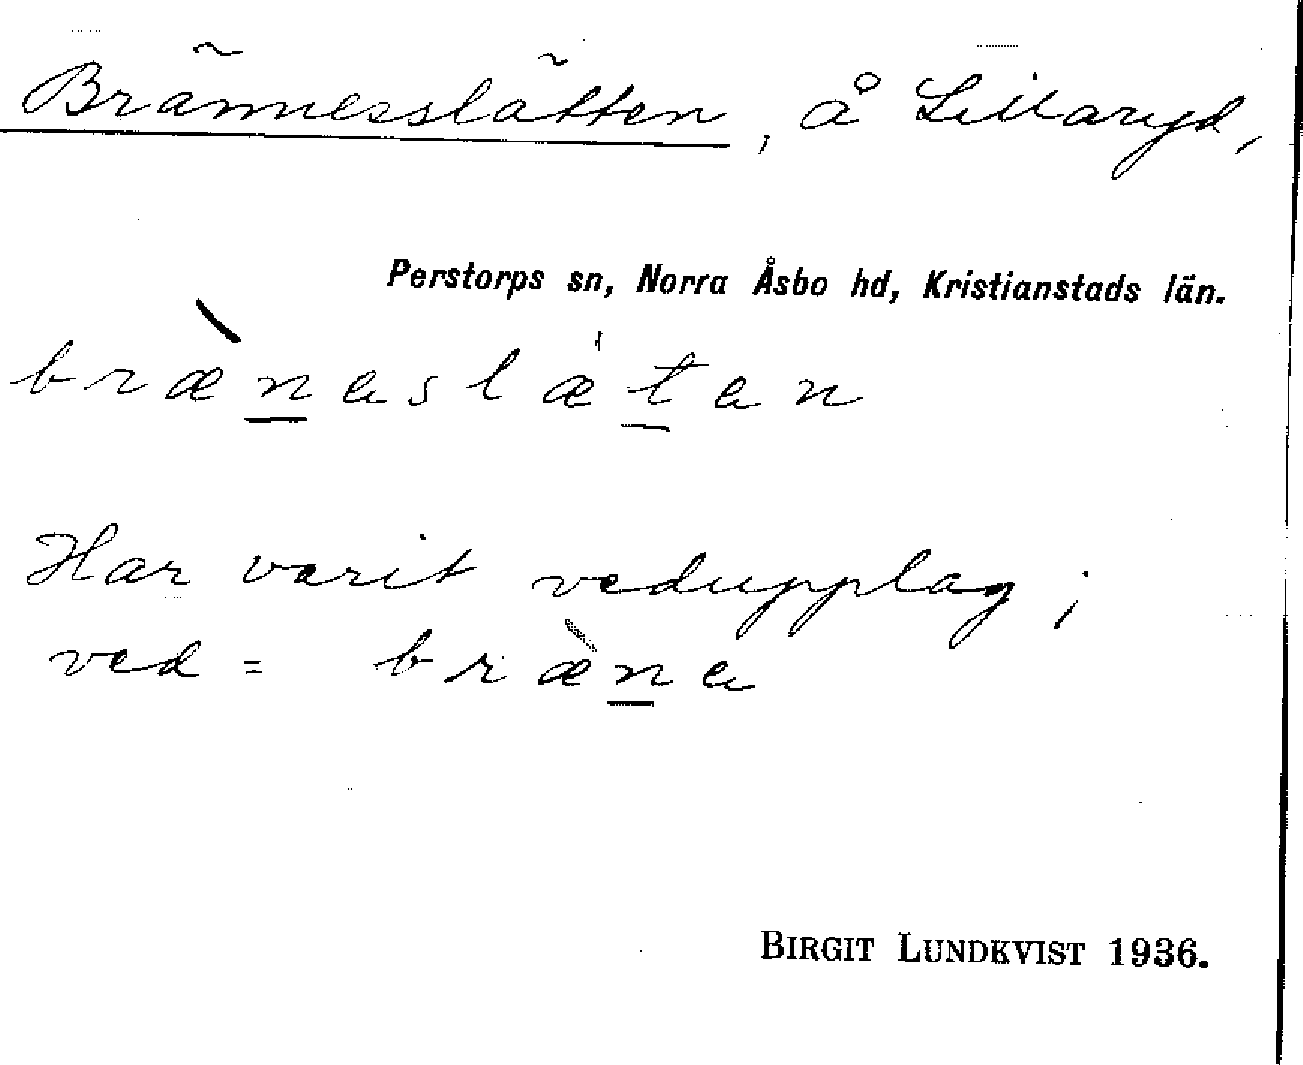 Brännesslätten, å Lillaryd,
Perstorps sn, Norra Åsbo hd, Kristianstads län.
bræ̀n̲aslæ̍t̲an
Har varit vedupplag;
ved = bræ̀n̲a
BIRGIT LUNDKVIST 1936.